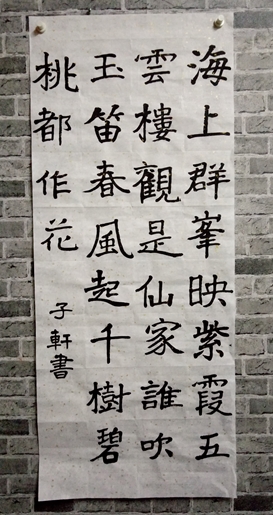 海上群峯映紫霞五
雲樓觀是仙家誰吹
玉笛春風起千樹碧
桃都作花
子軒書